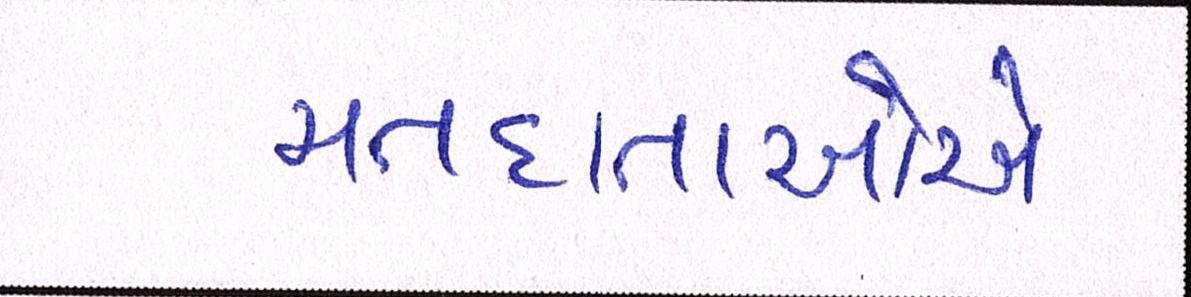 મતદાતાઓએ